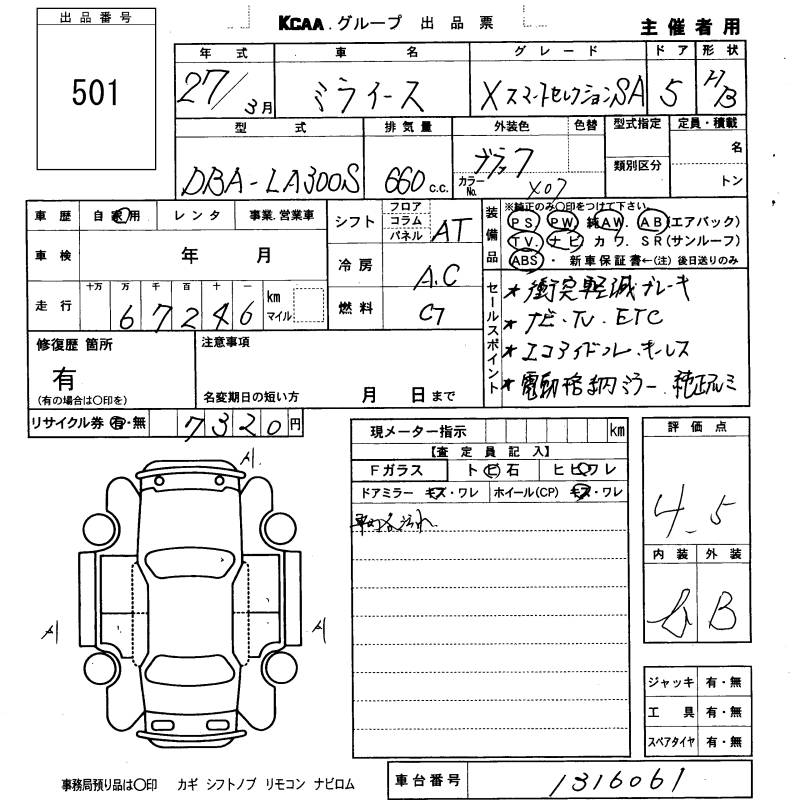 出品番号
501
KCAA.グループ 出品票
主催者用
年式 車名 グレード ドア 形状
27/3月 ミライース Xスマートセレクション SA 5 H/B
型式 排気量 外装色 色替 型式指定 定員・積載
DBA-LA300S 660c.c. ブラック
カラーNo. X07
類別区分
名
トン
車歴 自家用 レンタ 事業.営業車
シフト フロア コラム パネル AT
装備品
※純正のみ○印をつけて下さい。
PS PW 純AW. AB(エアバック)
TV. ナビ カワ. SR(サンルーフ)
ABS・ 新車保証書←(注)後日送りのみ
車検 年 月
冷房 A.C
走行 十万 万 千 百 十 一 km マイル
6 7 2 4 6
燃料
セールスポイント
★衝突軽減ブレーキ
★ナビ・TV. ETC
★エコアイドル.キーレス
★電動格納ミラー.純正アルミ
修復歴 箇所
有
(有の場合は○印を)
注意事項
名変期日の短い方 月 日まで
リサイクル券 有・無 7320円
現メーター指示 km
【査定員記入】
Fガラス ト ビ 石 ヒビ ワレ
ドアミラー キズ・ワレ ホイール(CP) キズ・ワレ
車内汚れ
A.
A
A
評価点
4.5
内装 外装
B
ジャッキ 有・無
工具 有・無
スペアタイヤ 有・無
事務局預り品は○印 カギ シフトノブ リモコン ナビロム
車台番号 1316061